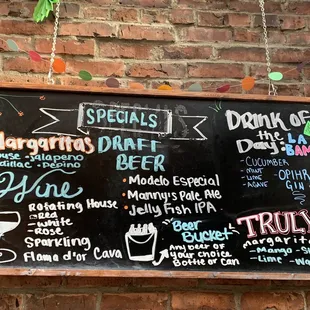 SPECIALS
Margaritas
House - jalapeno
Cadillac - Pepino
Wine
Rotating House
Red
White
Rose
Sparkling
Flama d'or Cava
DRAFT
BEER
Modelo Especial
Manny's Pale Ale
Jelly Fish IPA
Beer
Bucket
Any beer of
your choice
Bottle or Can
DRINK
of the
Day:
LA
CUCUMBER
MINT
LIME
AGAVE
OPIHR
GIN
TRULY
Margarita
Mango
Lime